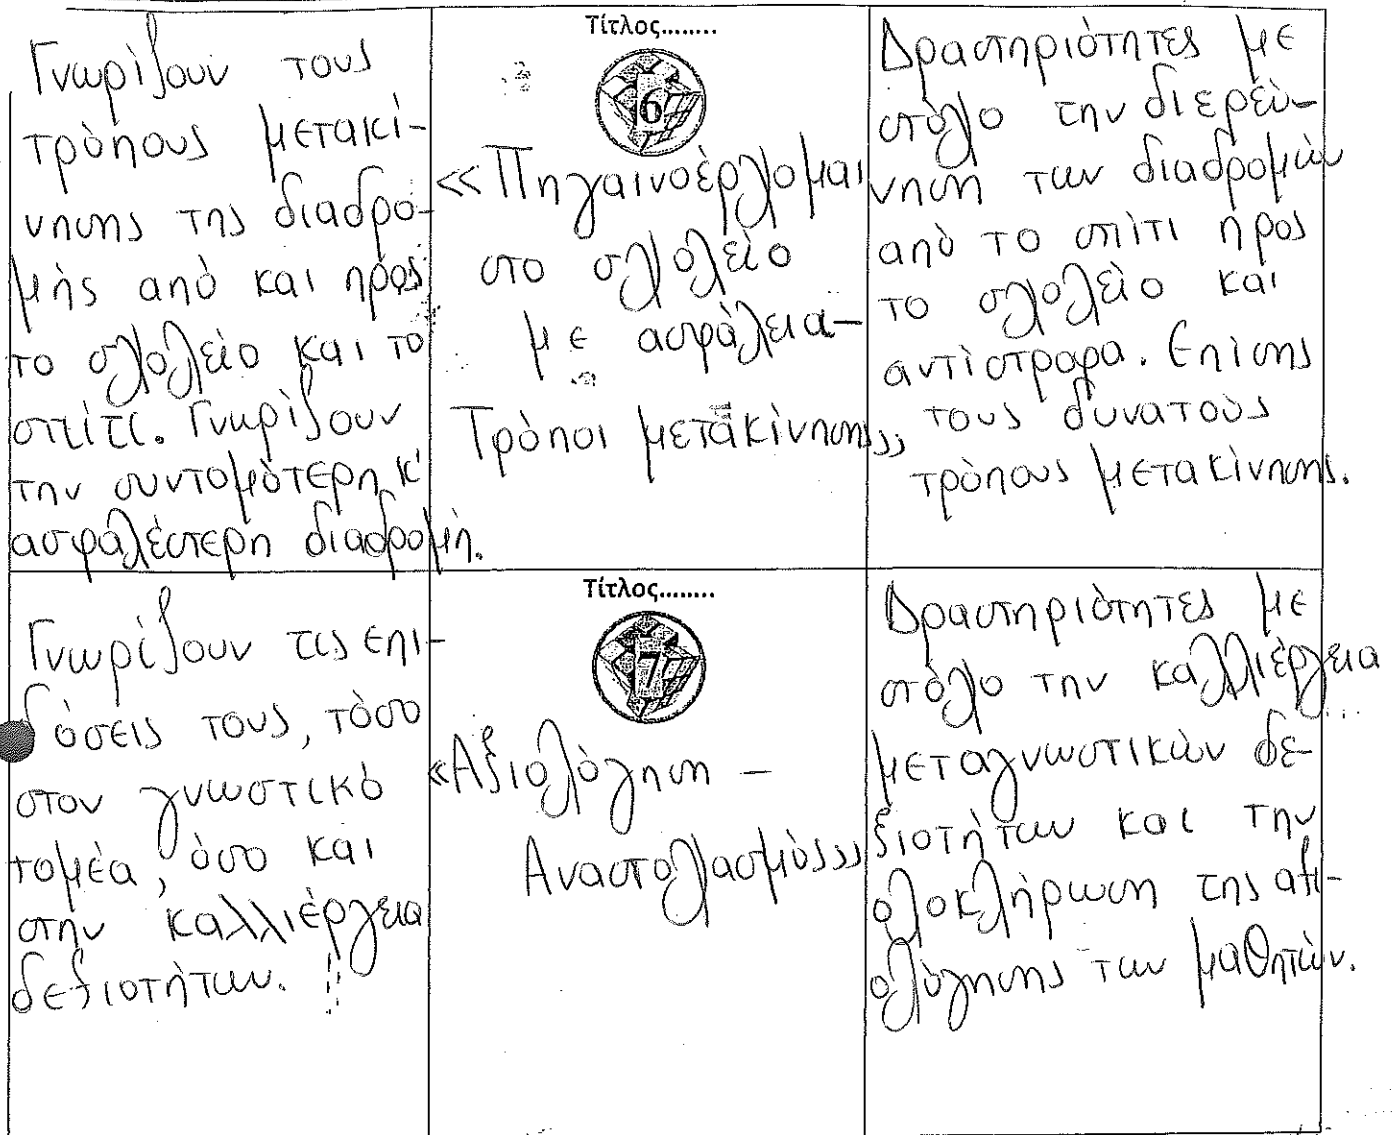 Γνωρίζουν τους
τρόπους μετακί-
νησης της διαδρο-
μής από και προς
το σχολείο και το
σπίτι. Γνωρίζουν
την συντομότερη κ'
ασφαλέστερη διαδρομή.
Τίτλος........
6
«Πηγαινοέρχομαι
στο σχολείο
με ασφάλεια-
Τρόποι μετακίνησης»
Δραστηριότητες με
στόχο την διερεύ-
νηση των διαδρομών
από το σπίτι προς
το σχολείο και
αντίστροφα. Επίσης
τους δυνατούς
τρόπους μετακίνησης.
Γνωρίζουν τις επι-
δόσεις τους, τόσο
στον γνωστικό
τομέα, όσο και
στην καλλιέργεια
δεξιοτήτων.
Τίτλος........
7
«Αξιολόγηση -
Αναστοχασμός»
Δραστηριότητες με
στόχο την καλλιέργεια
μεταγνωστικών δε-
ξιοτήτων και την
ολοκλήρωση της αξι-
ολόγησης των μαθητών.